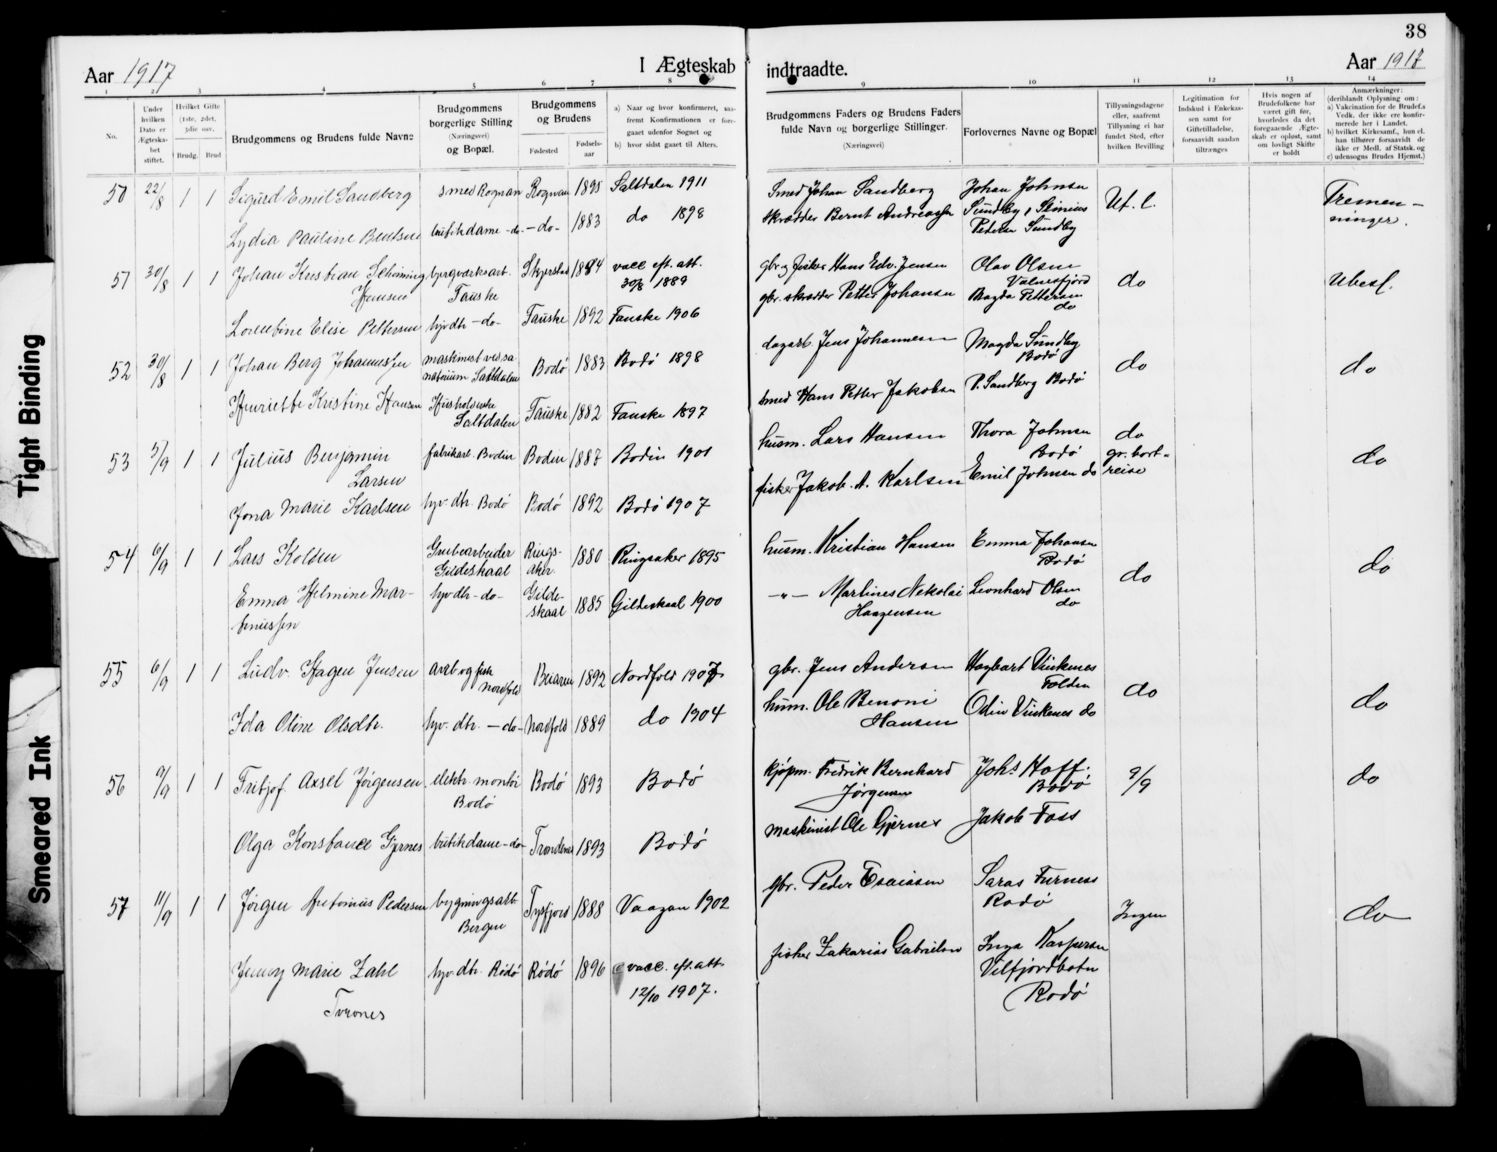 38
Aar 1917
I Ægteskab indtraadte.
Aar 1917
1 2 3 4 5 6 7 8 9 10 11 12 13 14
No.
Under hvilken Dato er Ægteska- bet stiftet.
Hvilket Gifte (1ste, 2det, 3die osv.
Brudg. Brud
Brudgommens og Brudens fulde Navne
Brudgommens borgerlige Stilling (Næringsvei) og Bopæl.
Brudgommens og Brudens
Fødested
Fødsels- aar
a) Naar og hvor konfirmeret, saa- fremt Konfirmationen er fore- gaaet udenfor Sognet og
b) hvor sidst gaaet til Alters.
Brudgommens Faders og Brudens Faders fulde Navn og borgerlige Stillinger.
(Næringsvei)
Forlovernes Navne og Bopæl
Tillysningsdagene eller, saafremt Tillysning ei har fundet Sted, efter hvilken Bevilling
Legitimation for Indskud i Enkekas- sen samt for Giftetilladelse, forsaavidt saadan tiltrænges
Hvis nogen af Brudefolkene har været gift før, hvorledes da det foregaaende Ægte- skab er opløst, samt om lovligt Skifte er holdt
Anmærkninger: (deriblandt Oplysning om: a) Vakcination for de Brudef.s Vedk. der ikke ere konfir- merede her i Landet. b) hvilket Kirkesamf., hun el. han tilhører forsaavidt de ikke er Medl. af Statsk. og c) udensogns Brudes Hjemst.)
50 22/8 1 1 Sigurd Emil Sandberg smed Rognan Rognan 1895 Saltdalen 1911 Smed Johan Sandberg Johan Johnsen Sundby, Simius Ut. l. Tremen-
Lydia Pauline Bentsen butikdame -do- -do- 1883 do 1898 skrædder Bernt Andreassen Pedersen Sundby ninger.
51 30/8 1 1 Johan Kristian Schøning Jensen bjergværksarb. Fauske Skjerstad 1884 vacc. eft. att. 30/8 1889 gbr. g fisker Hans Edv. Jensen Olav Olsen Valnesfjord do Ubesl.
Lorentine Elise Pettersen hjv dtr -do- Fauske 1892 Fauske 1906 gbr. skrædder Petter Johansen Magda Pettersen do
52 30/8 1 1 Johan Berg Johannessen maskinist ved sa- natorium Saltdalen Bodø 1883 Bodø 1898 dagarb. Jens Johannesen Magda Sundby Bodø do do
Henriette Kristine Hansen Husholderske Saltdalen Fauske 1882 Fauske 1897 smed Hans Petter Jakobsen P. Sandberg Bodø
53 5/9 1 1 Julius Benjamin Larsen fabrikarb. Bodin Bodin 1887 Bodin 1901 husm. Lars Hansen Thora Johnsen Bodø do gr. bort- reise do
Jona Marie Karlsen hjv. dtr. Bodø Bodø 1892 Bodø 1907 fisker Jakob. A. Karlsen Emil Johnsen do
54 6/9 1 1 Lars Kolden Grubearbeider Gildeskaal Rings- aker 1880 Ringsaker 1895 husm. Kristian Hansen Emma Johansen Bodø do do
Emma Helmine Mar- tinussen hjv dtr -do- Gilde- skaal 1885 Gildeskaal 1900 -"- Martines Nekolai Haagensen Leonhard Olsen do
55 6/9 1 1 Ludv. Hagen Jensen arb. og fisk Nordfold Beiaren 1892 Nordfold 1907 gbr. Jens Andersen Hagbart Vinkenes Folden do do
Ida Oline Olsdtr. hjv. dtr. -do- Nordfold 1889 do 1904 husm. Ole Benoni Hansen Odin Vinkenes do
56 9/9 1 1 Fritjof Axsel Jørgensen elektr. montør Bodø Bodø 1893 Bodø kjøpm. Fredrik Bernhard Jørgensen Johs Hoff. Bodø 9/9 do
Olga Konstance Gjernes butikdame -do- Trondenes 1893 Bodø maskinist Ole Gjernes Jakob Foss
57 11/9 1 1 Jørgen Antonius Pedersen bygningsarb. Bergen Tysfjord 1888 Vaagan 1902 gbr. Peder Esaiasen Saras Furness Rødø Ingen do
Jenny Marie Zahl Tvrønes hjv. dtr. Rødø Rødø 1896 vacc. eft. att. 12/10 1907. fisker Zakarias Gabrielsen Inga Kaspersen Vilfjordbotn Rødø
Tight Binding
Smeared Ink